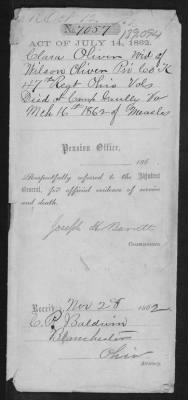 No 7057
182094
ACT OF JULY 14, 1862.
Clara Oliver Wid of
Wilson Oliver Pri Co K
47th Regt Ohio Vols
Died at Camp Va
Mch 16th 1862 of Measles
Pension Office,
186
Respectfully referred to the Adjutant
General, for official evidence of service
and death.
Joseph H Barrett
Commissioner.
Receiv Nov 28 1862
C. P. Baldwin
Blanchester
Ohio
Attorney.